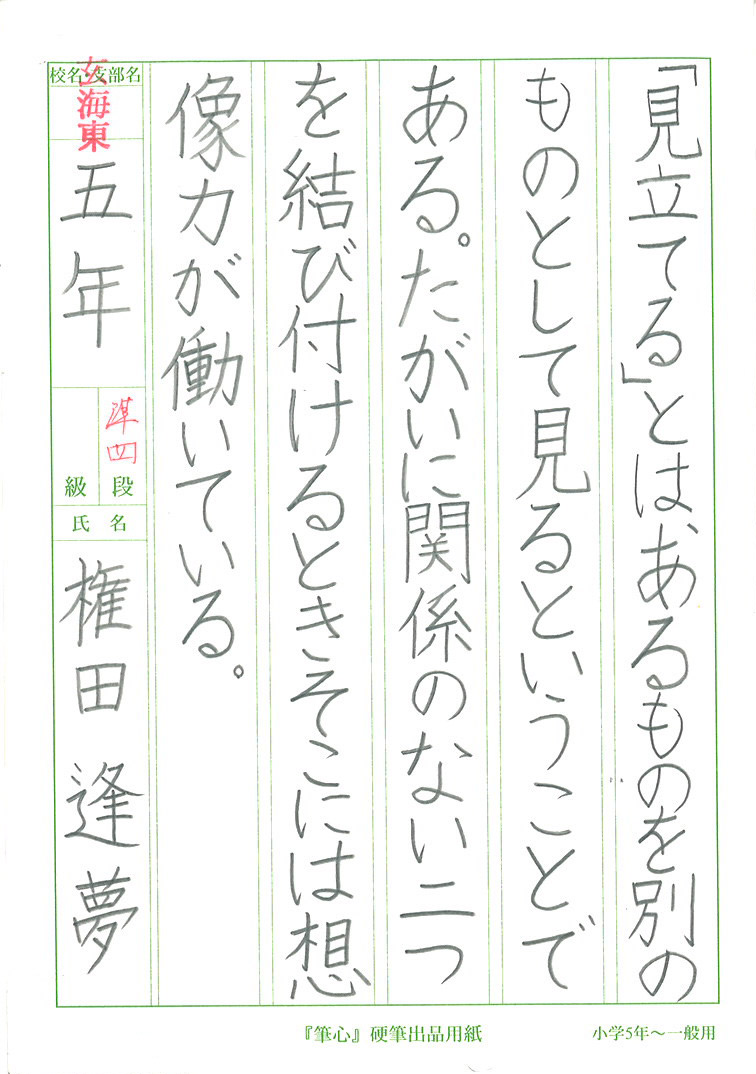 「見立てる」とは、あるものを別の
ものとして見るということで
ある。たがいに関係のない二つ
を結び付けるときそこには想
像力が働いている。
校名・支部名
玄海東
五年
準四
級 段
氏名
権田 逢夢
『筆心』硬筆出品用紙
小学5年〜一般用